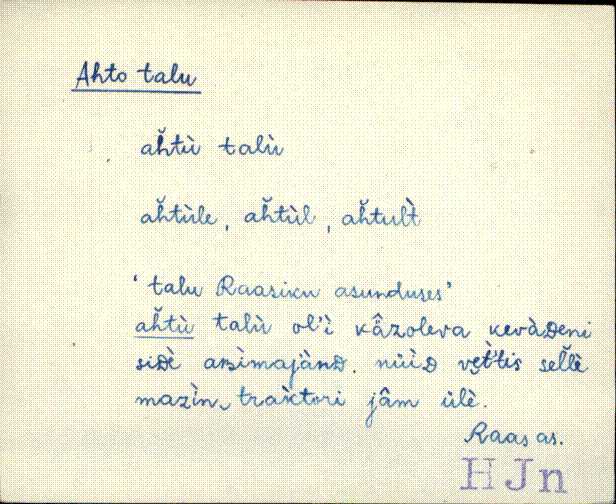 Ahto talu
ah̆tù talù
ah̆tùle, ah̆tùl, ah̆tult̀
‘talu Raasiku asunduses’
ah̆tù talù ol'ì kâzoleva kevàᴅeni
siᴅè aʙìmajànᴅ. nüìᴅ
mazìn, trak̀tori jâm ülè.
Raas as.
HJn